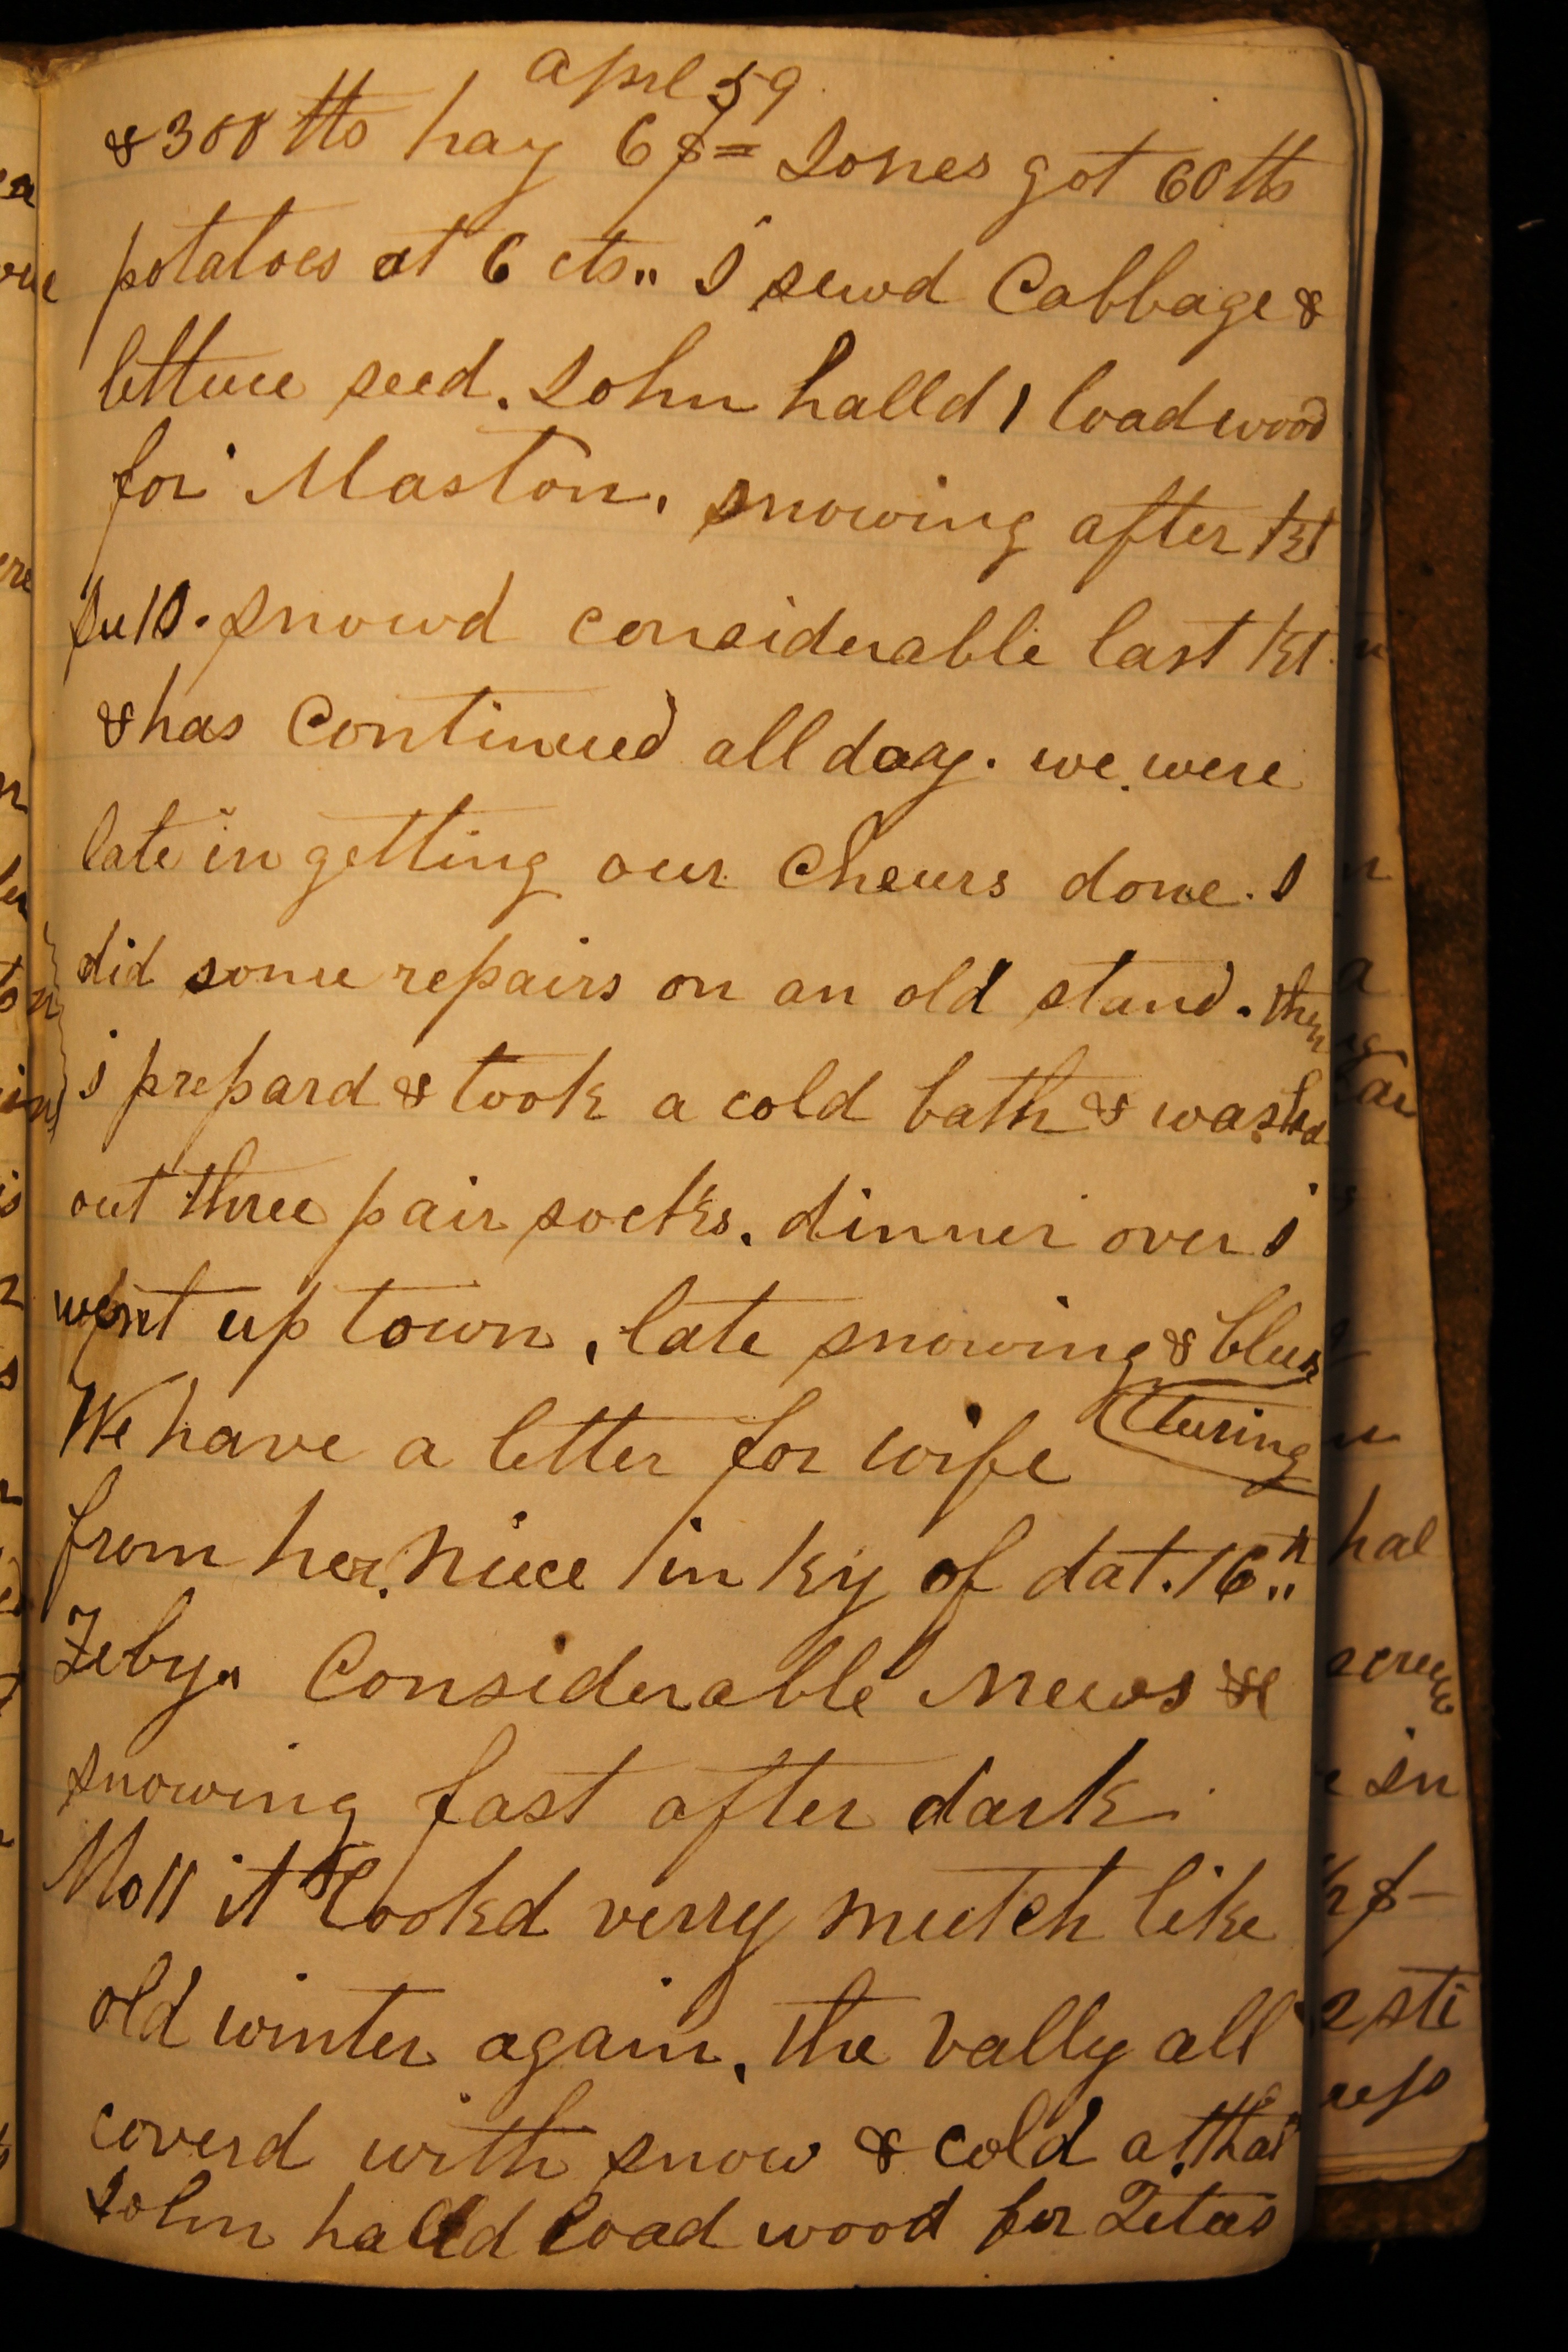 aprl 59
& 300 lbs hay 6$= Jones got 60 lbs
potatoes at 6 cts" I sewd Cabbage &
lettuce seed. John halld 1 load wood
for Maston. snowing after
Su 10. snowd considerable last
& has Continued all day. we were
late in getting our Cheurs done. I
did some repairs on an old stand. then
i prepard & took a cold bath & washd
out three pair socks. dinner over i
went up town, late snowing & blus
tturing
We have a letter for wife
from her Niece in Ky of dat. 16th
Feby" Considerable News &c
snowing fast after dark.
Mo 11 it lookd verry mutch like
old winter again, the vally all
coverd with snow & cold at that
John halld load wood for Titus